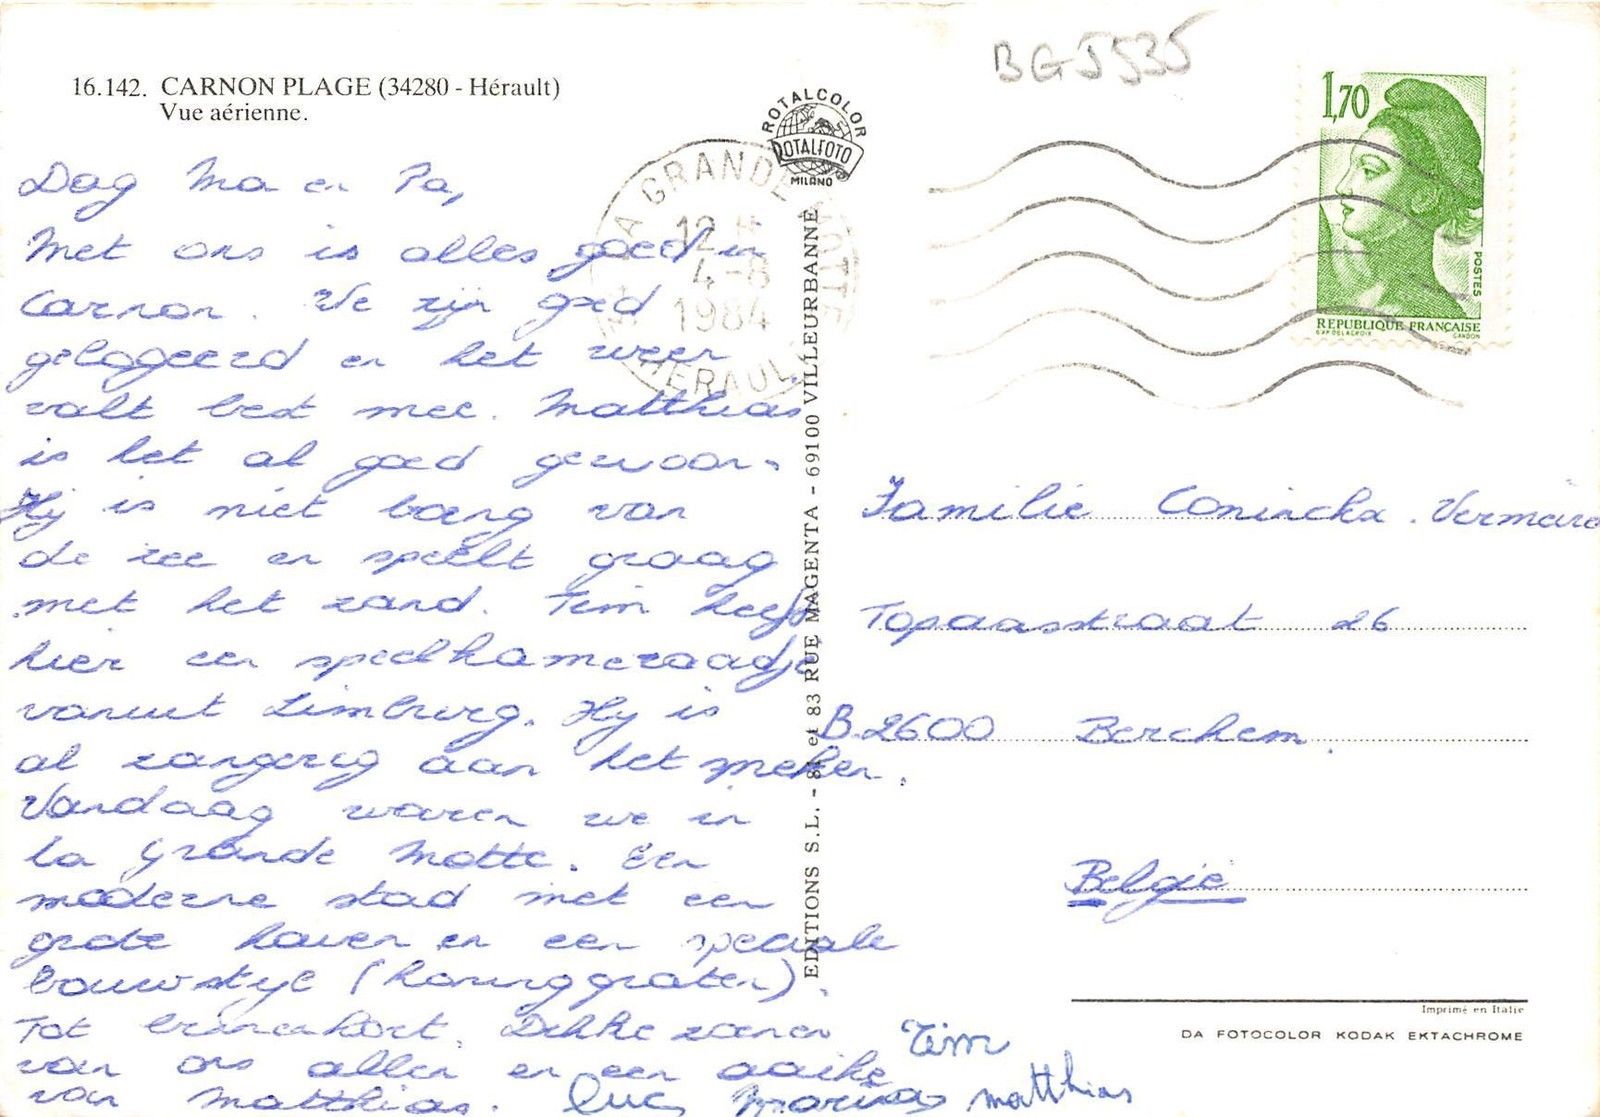 BG5535
16.142. CARNON PLAGE (34280 - Hérault)
Vue aérienne.
ROTALCOLOR
ROTALFOTO
MILANO
1,70
POSTES
REPUBLIQUE FRANÇAISE
LA GRANDE MOTTE
12 H
4-8
1984
HERAULT
Dag Ma en Pa,
Met ons is alles goed in
Carnon. We zijn goed
gelogeerd en het weer
valt best mee. Matthias
is het al goed gewoon.
Hij is niet bang van
de zee en speelt graag
met het zand. Tim heeft
hier een speelkameraadje
vanuit Limburg. Hij is
al zangerig aan het spreken.
Vandaag waren we in
la Grande Motte. Een
moderne stad met een
grote haven en een speciale
bouwstijl (honinggraten).
Tot binnenkort. Dikke zoenen
van ons allen en een aaike
van Matthias. Luc, Marina, Matthias
Tim
EDITIONS S.L. - 81 et 83 RUE MAGENTA - 69100 VILLEURBANNE
Familie Coninckx - Vermeire
Topaasstraat 26
B-2600 Berchem.
België
Imprimé en Italie
DA FOTOCOLOR KODAK EKTACHROME